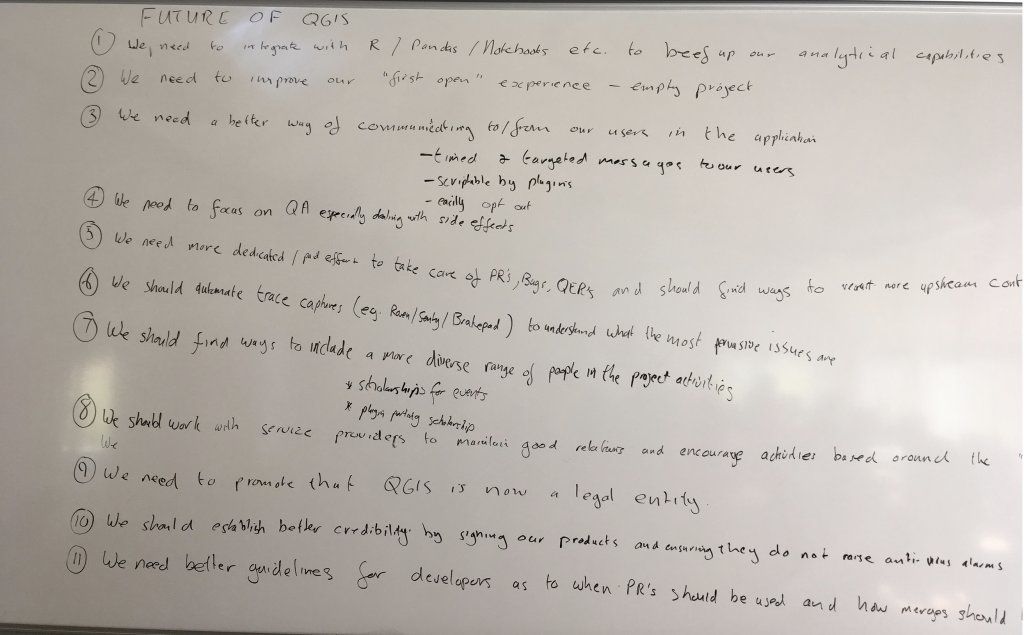 FUTURE OF QGIS
① We need to integrate with R / Pandas / Notebooks etc. to beef up our analytical capabilities
② We need to improve our "first open" experience – empty project
③ We need a better way of communicating to/from our users in the application
– timed & targeted messages to our users
– scriptable by plugins
– easily opt out
④ We need to focus on QA especially dealing with side effects
⑤ We need more dedicated / paid effort to take care of PR's, Bugs, QEPs and should find ways to recruit more upstream cont
⑥ We should automate trace captures (eg. Raven/Sentry/Brakepad) to understand what the most pervasive issues are
⑦ We should find ways to include a more diverse range of people in the project activities
* scholarships for events
* plugin porting scholarship
⑧ We should work with service providers to maintain good relations and encourage activities based around the
We
⑨ We need to promote that QGIS is now a legal entity.
⑩ We should establish better credibility by signing our products and ensuring they do not raise anti-virus alarms
⑪ We need better guidelines for developers as to when PR's should be used and how merges should